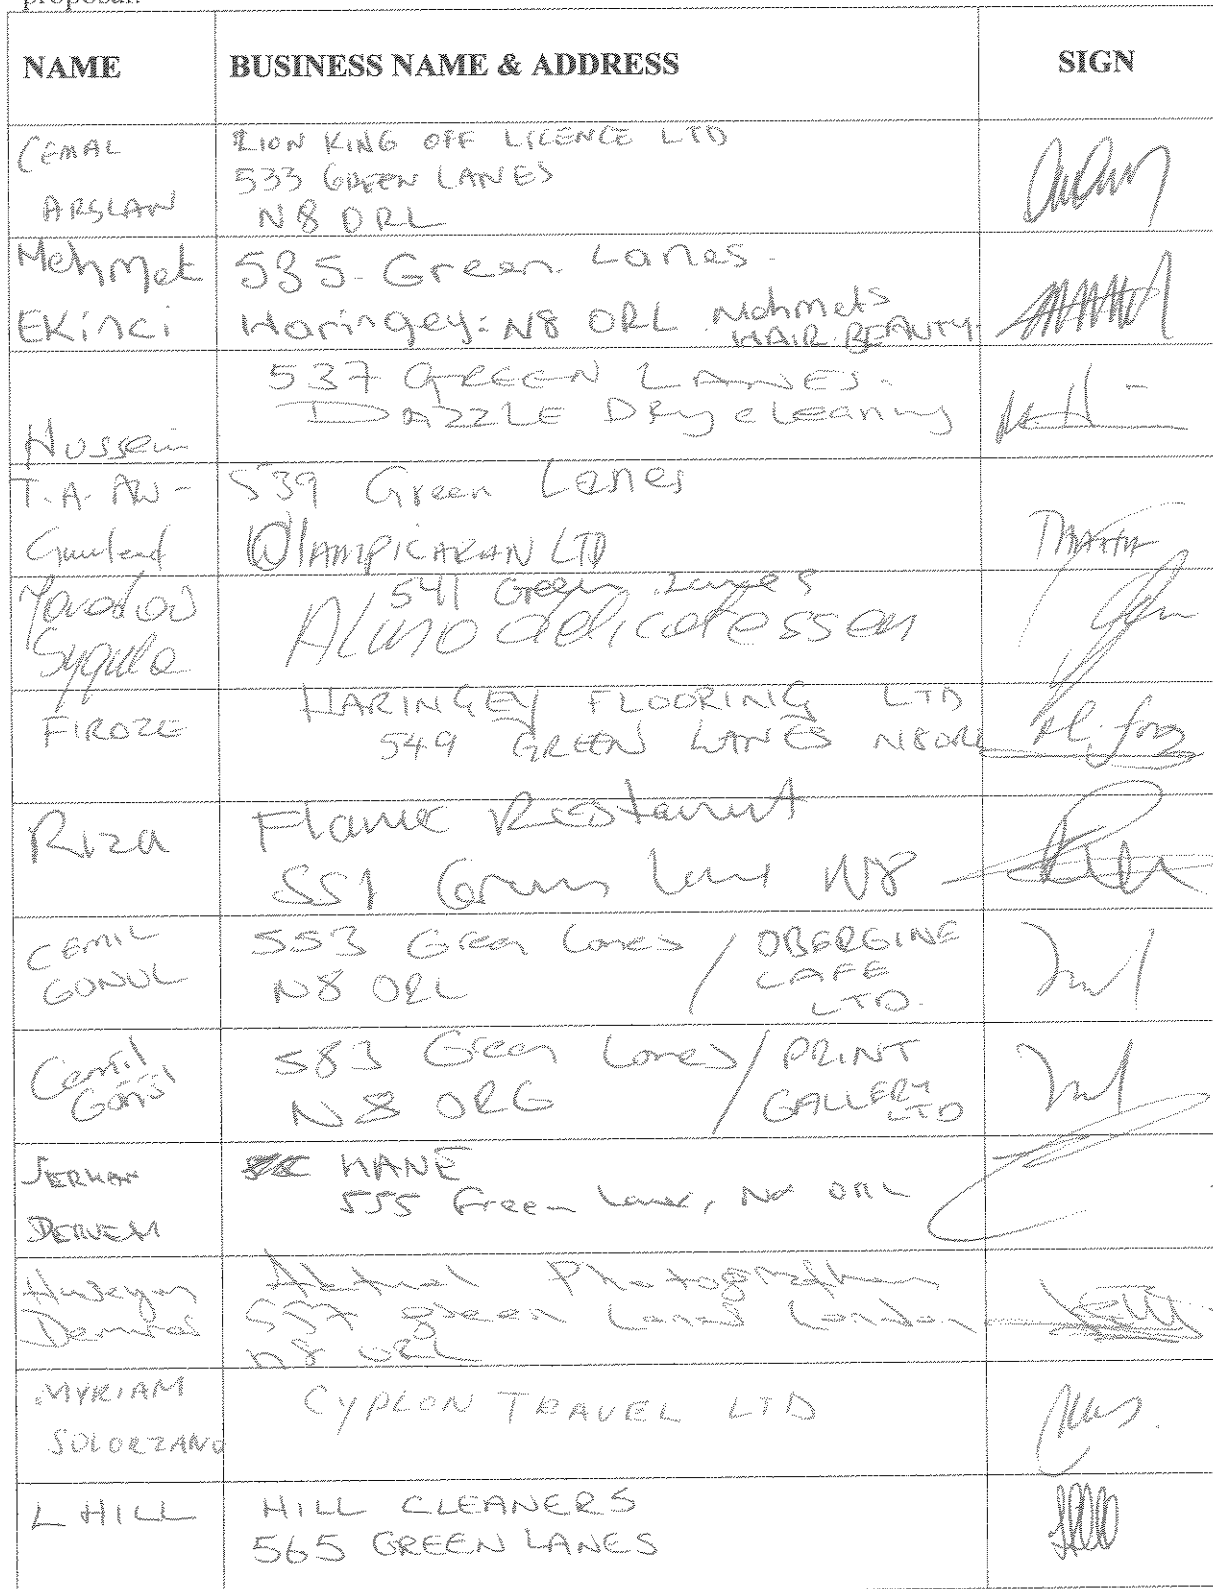 proposal.
NAME BUSINESS NAME & ADDRESS SIGN
CEMAL ARSLAN
LION KING OFF LICENCE LTD
533 GREEN LANES
N8 0RL
Mehmet EKinci
535. Green. Lanes.
Haringey: N8 0RL. Mehmets HAIR. BEAUTY.
Hussein
537 GREEN LANES.
DAZZLE Dry cleaning
T. A. AW-
539 Green Lanes
LTD
541 Green Lanes
delicatessen
FIROZE
HARINGEY FLOORING LTD
549 GREEN LANES N8 0RL
Riza
Flame Restaurant
551 Green Lanes N8
CEMIL GONUL
553 Green Lanes / OBERGINE CAFE LTD.
N8 0RL
Cemil Gonul
583 Green Lanes / PRINT GALLERY LTD
N8 0RG
HANE
555 Green Lanes, N8 0RL
Huseyin
Photographers
557 green Lanes London
N8 0RL
MYRIAM SOLORZANO
CYPLON TRAVEL LTD
L HILL
HILL CLEANERS
565 GREEN LANES